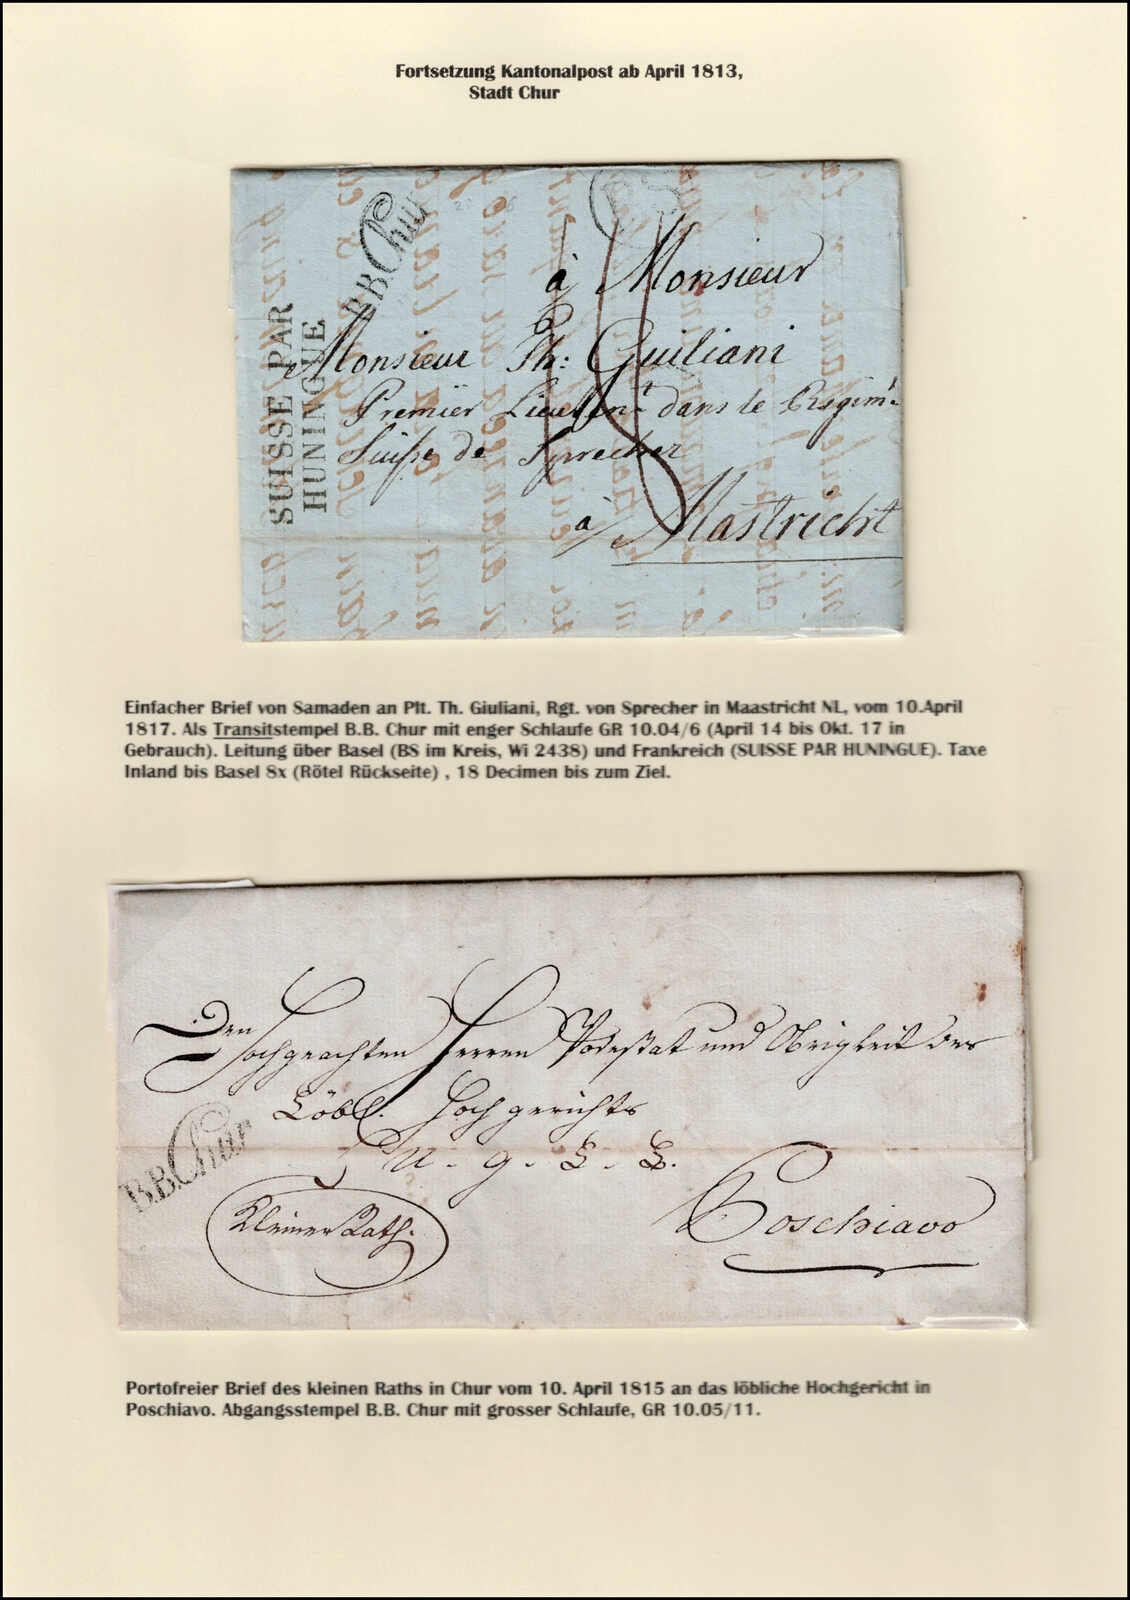 Fortsetzung Kantonalpost ab April 1813,
Stadt Chur
B.B. Chur
SUISSE PAR
HUNINGUE
à Monsieur
Monsieur Th: Guiliani
Premier Lieuten.t dans le Regim.t
Suisse de Sprecher
à Mastricht
Einfacher Brief von Samaden an Plt. Th. Giuliani, Rgt. von Sprecher in Maastricht NL, vom 10.April
1817. Als Transitstempel B.B. Chur mit enger Schlaufe GR 10.04/6 (April 14 bis Okt. 17 in
Gebrauch). Leitung über Basel (BS im Kreis, Wi 2438) und Frankreich (SUISSE PAR HUNINGUE). Taxe
Inland bis Basel 8x (Rötel Rückseite) , 18 Decimen bis zum Ziel.
Den Hochgeachten Herren Podestat und Obrigkeit des
Löbl. Hochgerichts
U. g. L. B.
B.B. Chur
Kleiner Rath.
Poschiavo
Portofreier Brief des kleinen Raths in Chur vom 10. April 1815 an das löbliche Hochgericht in
Poschiavo. Abgangsstempel B.B. Chur mit grosser Schlaufe, GR 10.05/11.